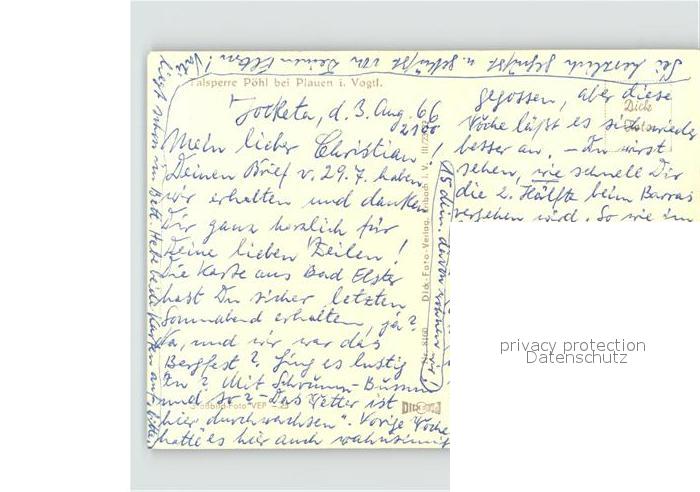 Talsperre Pöhl bei Plauen i. Vogtl.
Jocketa, d. 3. Aug. 66
21⁰⁰
Mein lieber Christian!
Deinen Brief v. 29.7. haben
wir erhalten und danken
Dir ganz herzlich für
Deine lieben Zeilen!
Die Karte aus Bad Elster
hast Du sicher letzten
Sonnabend erhalten, ja?
Na, und wie war das
Bergfest? Ging es lustig
zu? Mit Schrumm-Bumm
und so? - Das Wetter ist
hier „durchwachsen". Vorige Woche
hatte es hier auch wahnsinnig
gegossen, aber diese
Woche läßt es sich wieder
besser an. - Du wirst
sehen, wie schnell Dir
die 2. Hälfte beim Barras
vergehen wird. So wie im
Sei herzlich gegrüßt u. geküßt von Deinen Eltern! Vati
liegt schon im Bett. Hebe beide Karten auf, bitte,
Dick-Foto-Verlag, Erlbach i. V.
Nr. 8160
Großbild-Foto VEP - 25
DICK
Dick
Foto
privacy protection
Datenschutz